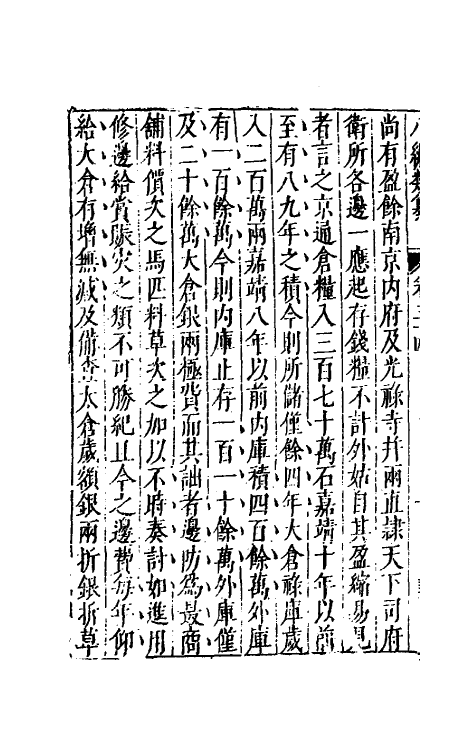 八編類纂 卷三十四
尚有盈餘南京内府及光祿寺并兩直隷天下司府
衛所各邊一應起存錢糧不計外姑自其盈縮易見
者言之京通倉糧入三百七十萬石嘉靖十年以前
至有八九年之積今則所儲僅餘四年大倉祿庫歲
入二百萬兩嘉靖八年以前内庫積四百餘萬外庫
有一百餘萬今則内庫止存一百一十餘萬外庫僅
及二十餘萬大倉銀兩極費而其詘者邊防爲最商
舖料價次之馬匹料草次之加以不時奏討如進用
修邊給賞賑灾之類不可勝紀且今之邊費每年仰
給大倉有增無减及備查太倉歲額銀兩折銀折草